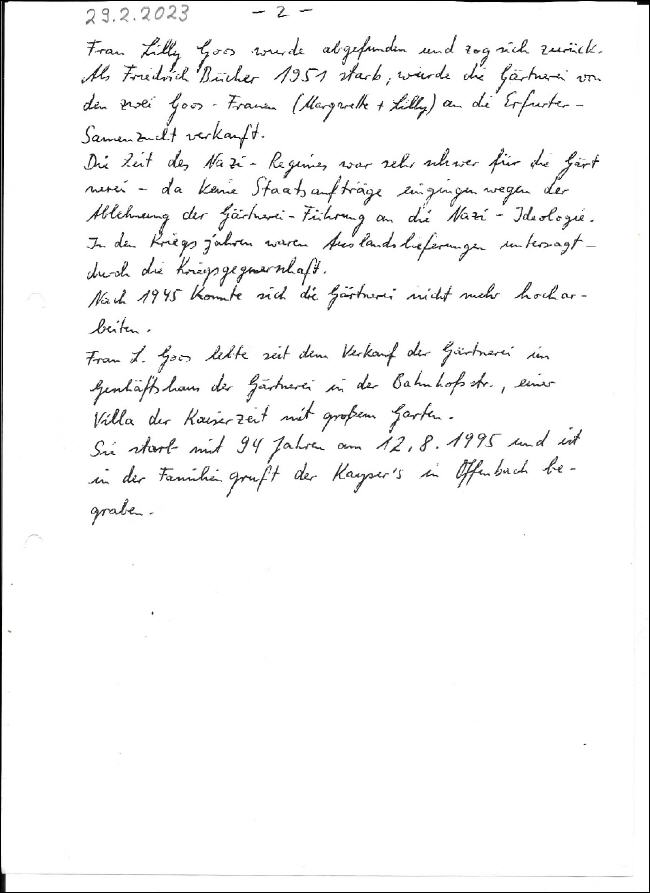 29.2.2023 - 2 -
Frau Lilly Goos wurde abgefunden und zog sich zurück.
Als Friedrich Bücher 1951 starb, wurde die Gärtnerei von
den zwei Goos-Frauen (Margarethe + Lilly) an die Erfurter-
Samenzucht verkauft.
Die Zeit des Nazi-Regimes war sehr schwer für die Gärt
nerei - da keine Staatsaufträge eingingen wegen der
Ablehnung der Gärtnerei-Führung an die Nazi-Ideologie.
In den Kriegsjahren waren Auslandslieferungen untersagt -
durch die Kriegsgegnerschaft.
Nach 1945 konnte sich die Gärtnerei nicht mehr hochar-
beiten.
Frau L. Goos lebte seit dem Verkauf der Gärtnerei im
Geschäftshaus der Gärtnerei in der Bahnhofstr., einer
Villa der Kaiserzeit mit großem Garten.
Sie starb mit 94 Jahren am 12.8.1995 und ist
in der Familiengruft der Kayser's in Offenbach be-
graben.